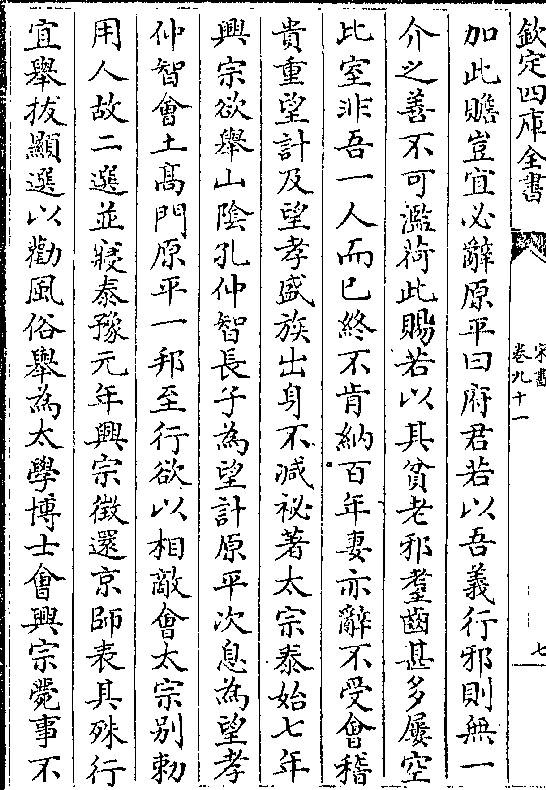 欽定四庫全書
宋書
卷九十一
七
加此贍豈宜必辭原平曰府君若以吾義行邪則無一
介之善不可濫荷此賜若以其貧老邪耋齒甚多屢空
比室非吾一人而已終不肯納百年妻亦辭不受會稽
貴重望計及望孝盛族出身不減袐著太宗泰始七年
興宗欲舉山陰孔仲智長子為望計原平次息為望孝
仲智會土髙門原平一邦至行欲以相敵會太宗别勅
用人故二選並寢泰豫元年興宗徵還京師表其殊行
宜舉拔顯選以勸風俗舉為太學博士會興宗薨事不